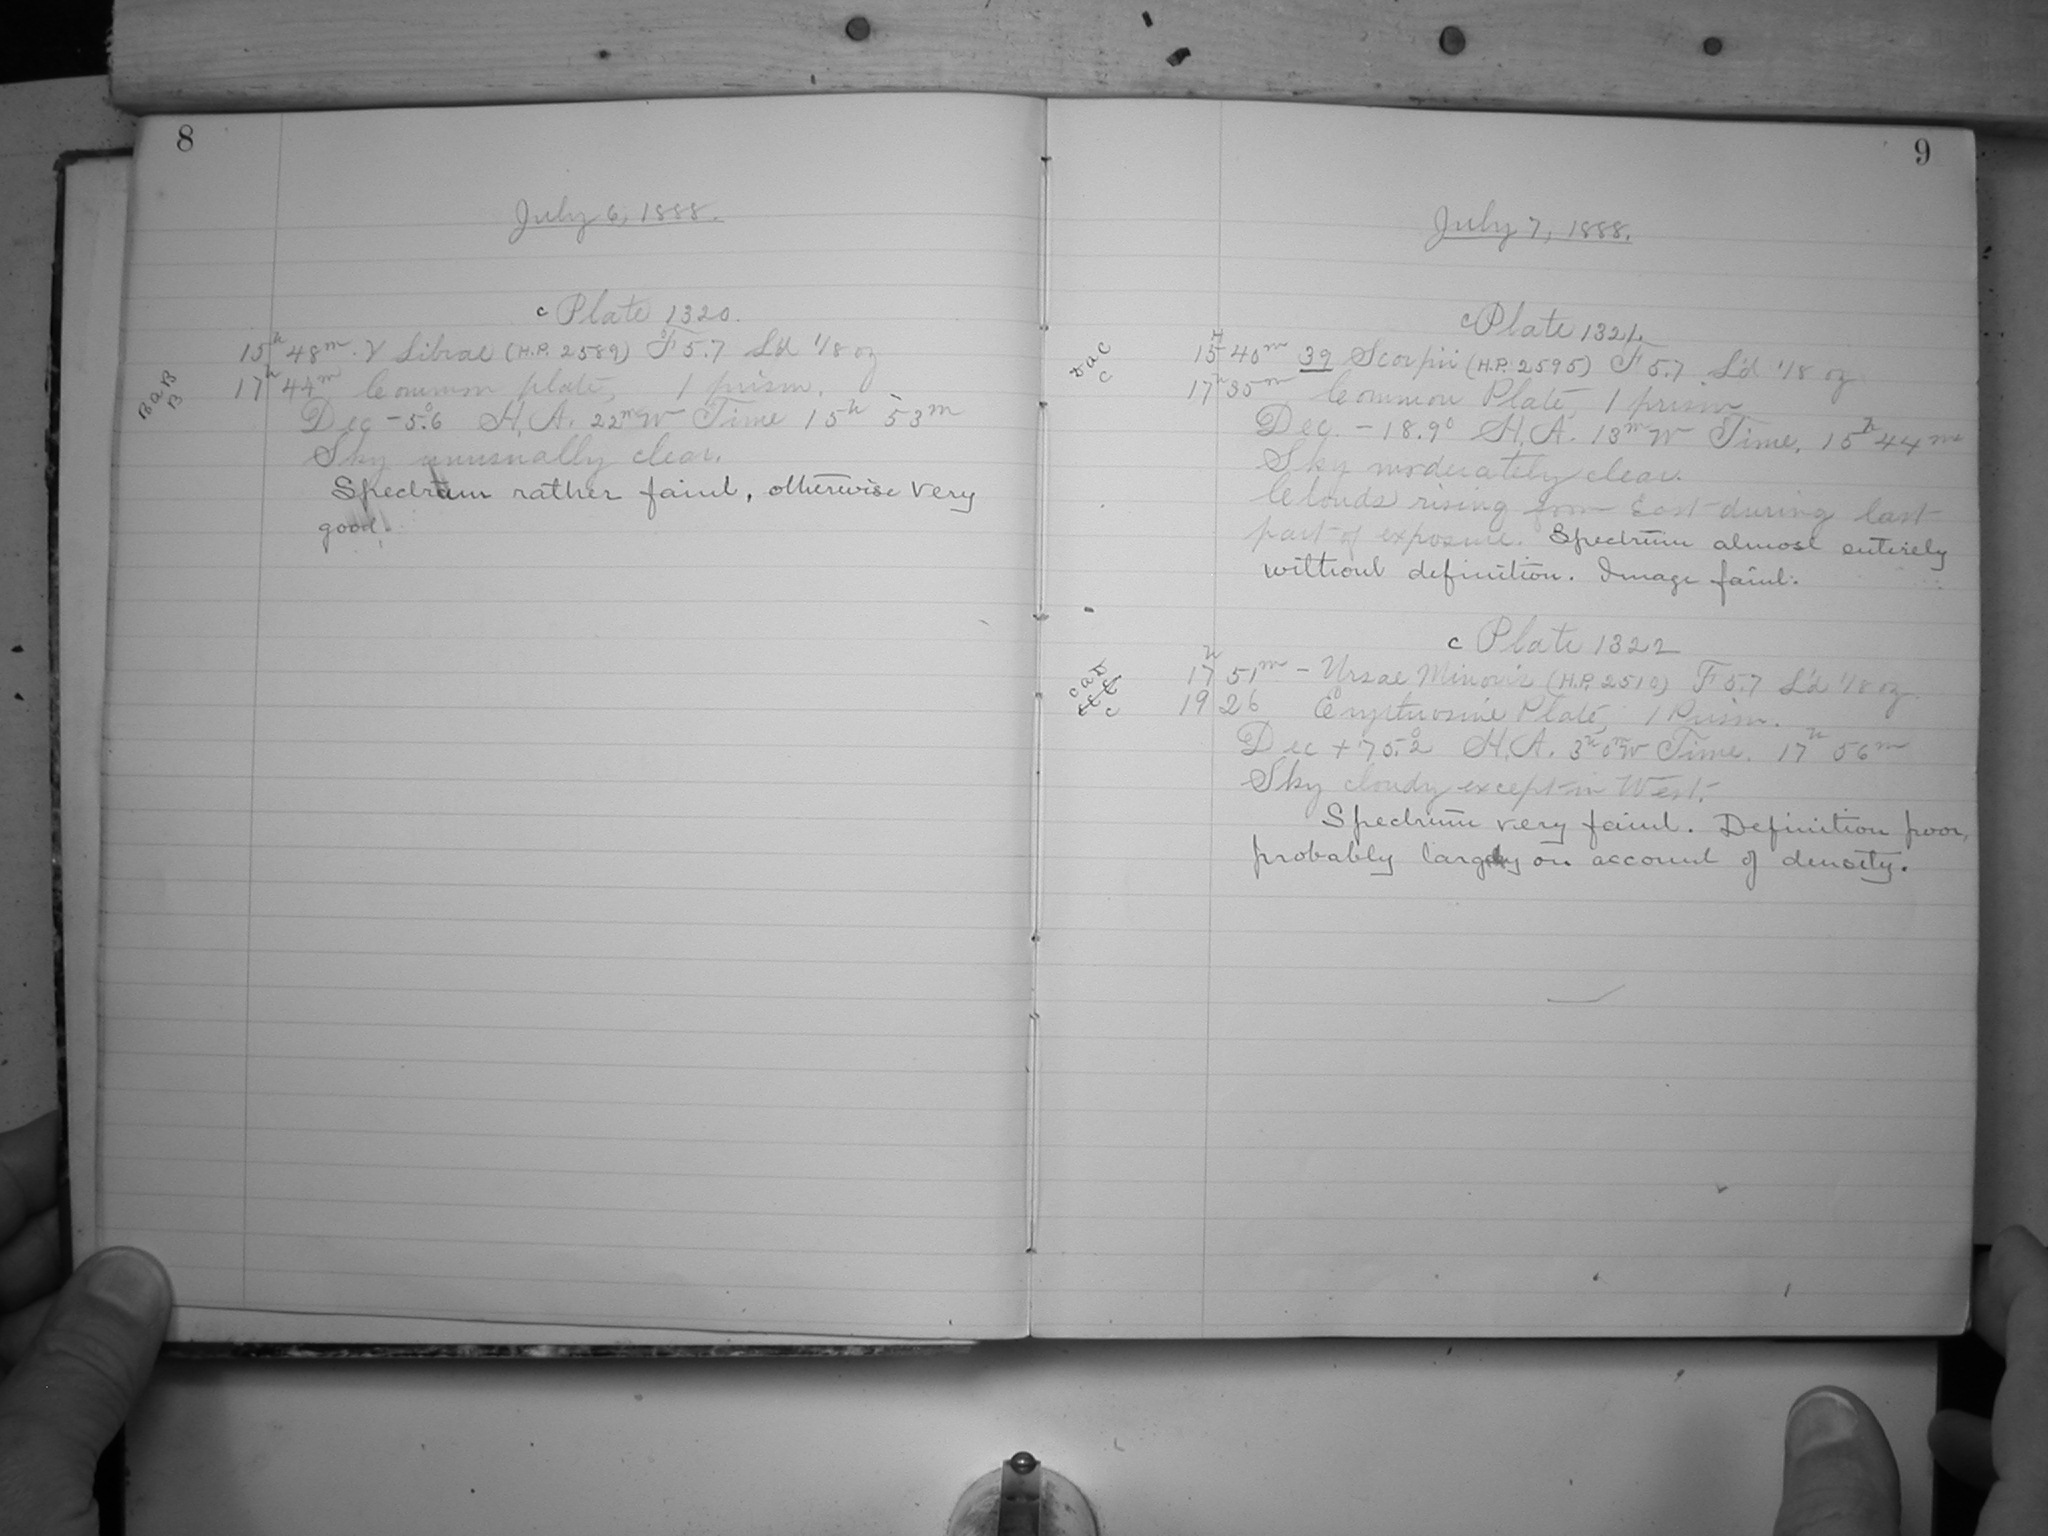 8
July 6, 1888.
c Plate 1320.
15h 48m. γ Librae (H.P. 2589) F 5.7 L'd 1/8 oz
17h 44m Common plate, 1 prism.
B a B
B
Dec -5.°6 H.A. 22m W Time 15h 53m
Sky unusually clear.
Spectrum rather faint, otherwise very
good.
9
July 7, 1888.
c Plate 1321.
15h 40m 39 Scorpii (H.P. 2595) F 5.7 L'd 1/8 oz
17h 35m Common Plate, 1 prism
C
Dec. -18.9° H.A. 13m W Time. 15h 44m
Sky moderately clear.
Clouds rising from East during last
part of exposure. Spectrum almost entirely
without definition. Image faint.
c Plate 1322
17h 51m - Ursae Minoris (H.P. 2510) F 5.7 L'd 1/8 oz.
19 26 Erythrosine Plate, 1 Prism.
C
Dec + 75.°2 H.A. 3h 0m W Time. 17h 56m
Sky cloudy except in West.
Spectrum very faint. Definition poor,
probably largely on account of density.